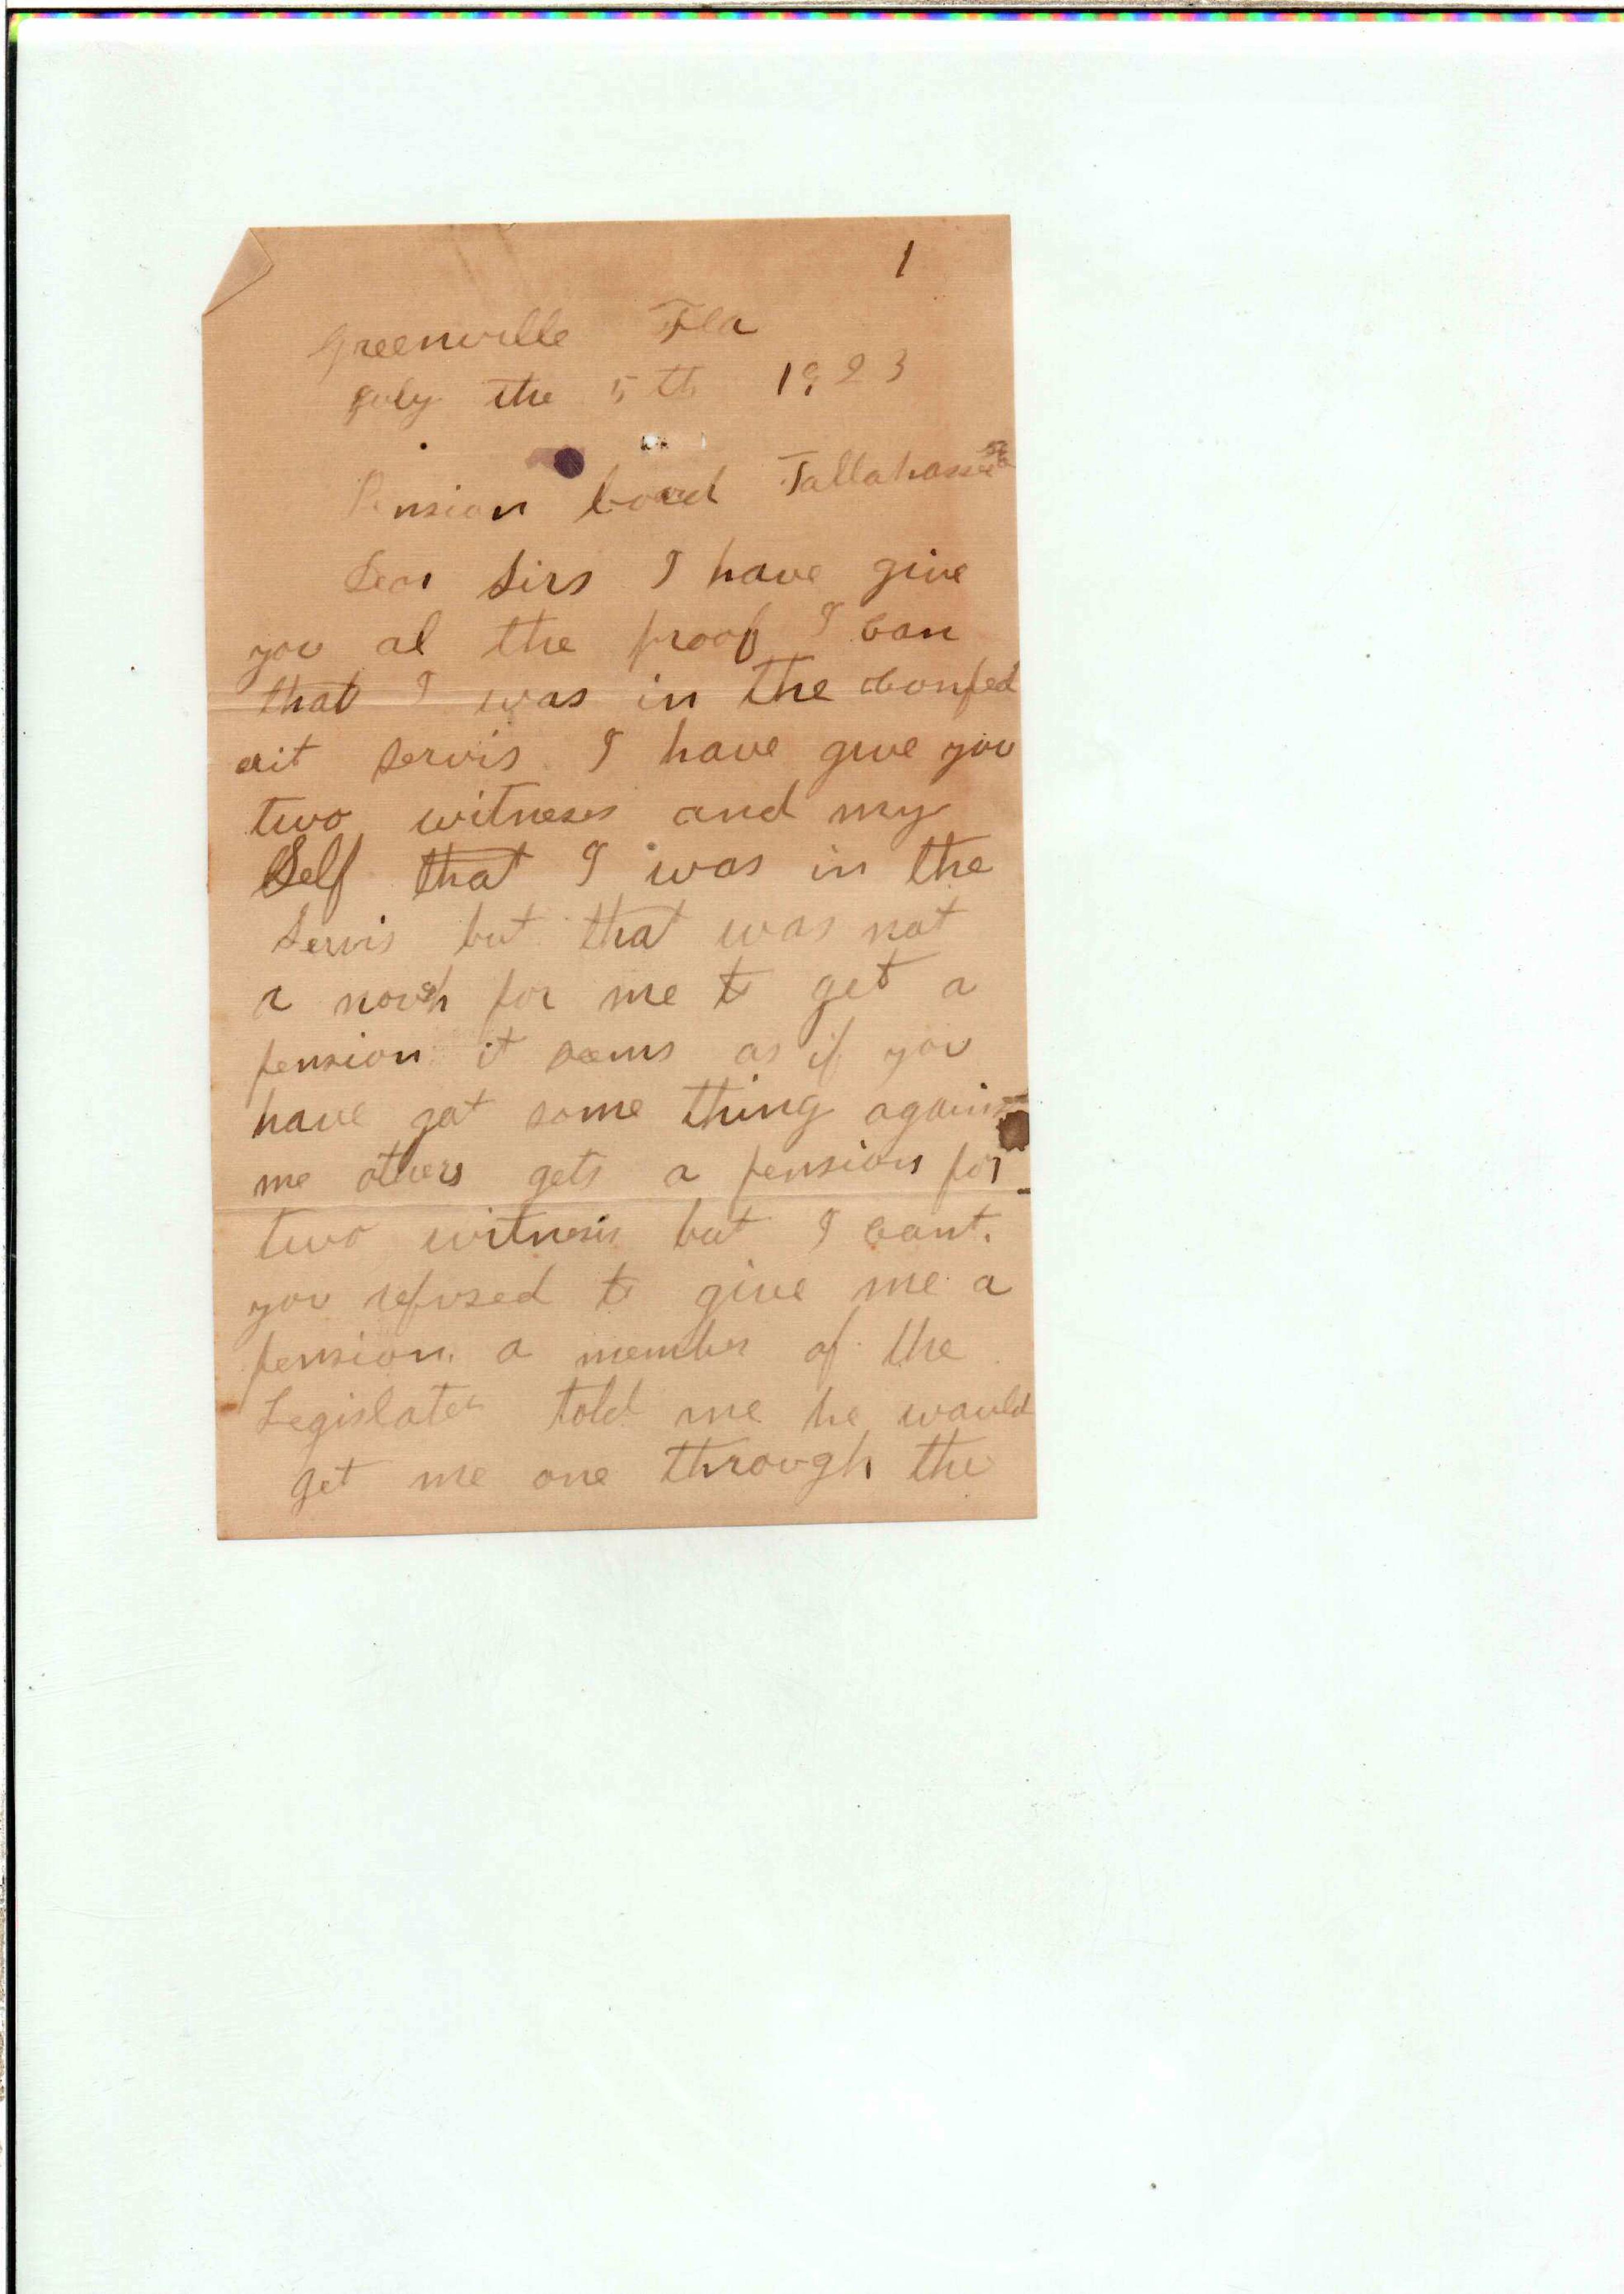 1
Greenville Fla
July the 5th 1923
Pension board Tallahassee
Dear Sirs I have give
you al the proof I can
that I was in the confed
erit servis I have give you
two witneses and my
Self that I was in the
Servis but that was not
a nough for me to get a
pension it seems as if you
have got some thing agains
me others gets a pension for
two witnesis but I cant.
you refused to give me a
pension. a member of the
Legislater told me he would
get me one through the